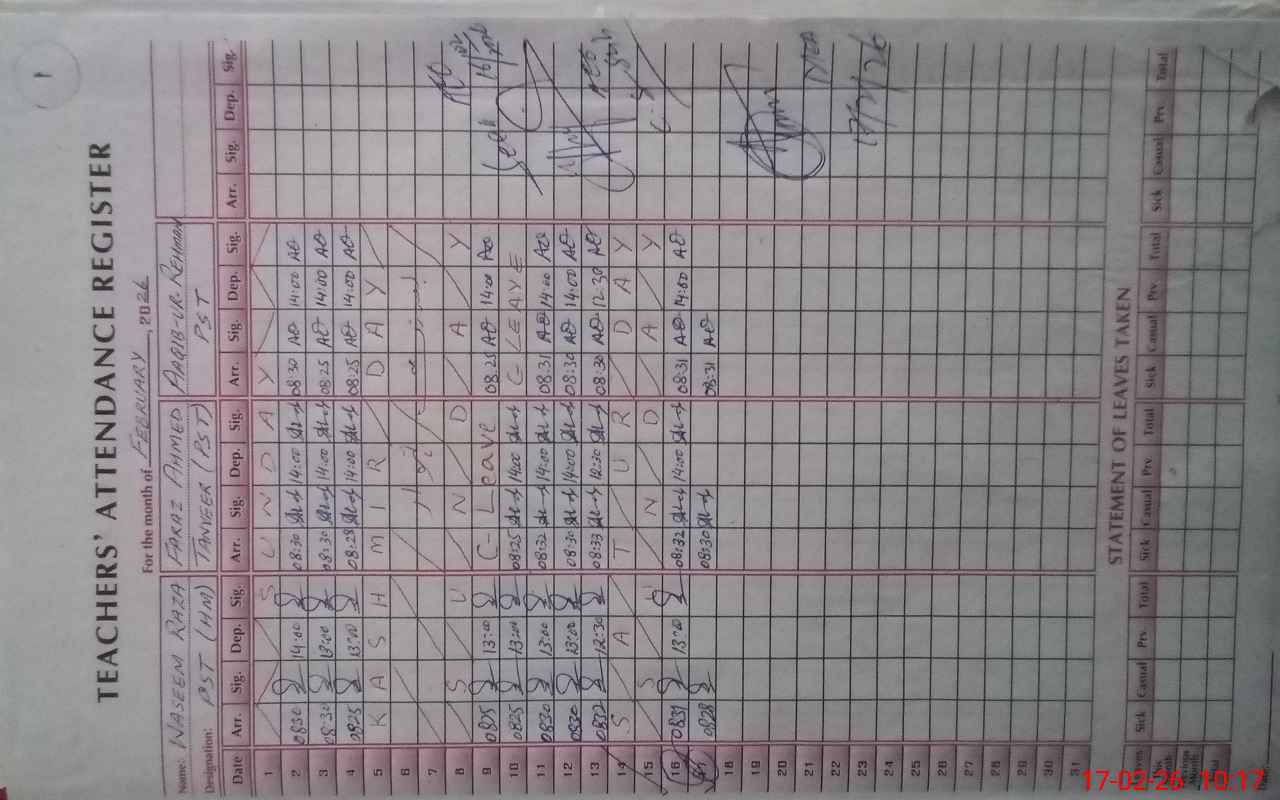 1
TEACHERS' ATTENDANCE REGISTER
For the month of FEBRUARY, 2026
Name: WASEEM RAZA FARAZ AHMED AAQIB-UR-REHMAN
Designation: PST (HM) TANVEER (PST) PST
Date Arr. Sig. Dep. Sig. Arr. Sig. Dep. Sig. Arr. Sig. Dep. Sig. Arr. Sig. Dep. Sig.
1 S U N D A Y
2 0830 14:00 08:30 14:00 08:30 14:00
3 08:30 13:00 08:30 14:00 08:25 14:00
4 0825 13:00 08:28 14:00 08:25 14:00
5 K A S H M I R D A Y
6
7
8 S U N D A Y
9 0825 13:00 C- Leave 08:25 14:00
10 0825 13:00 08:25 14:00 C- LEAVE
11 0830 13:00 08:32 14:00 08:31 14:00
12 0830 13:00 08:30 14:00 08:30 14:00
13 0832 12:30 08:33 12:30 08:30 12:30
14 S A T U R D A Y
15 S U N D A Y
16 0831 13:00 08:32 14:00 08:31 14:00
17 0828 08:30 08:31
18
19
20
21
22
23
24
25
26
27
28
29
30
31
17/2/26
STATEMENT OF LEAVES TAKEN
Sick Casual Prv Total Sick Casual Prv Total Sick Casual Prv Total Sick Casual Prv Total
17-02-26 10:17